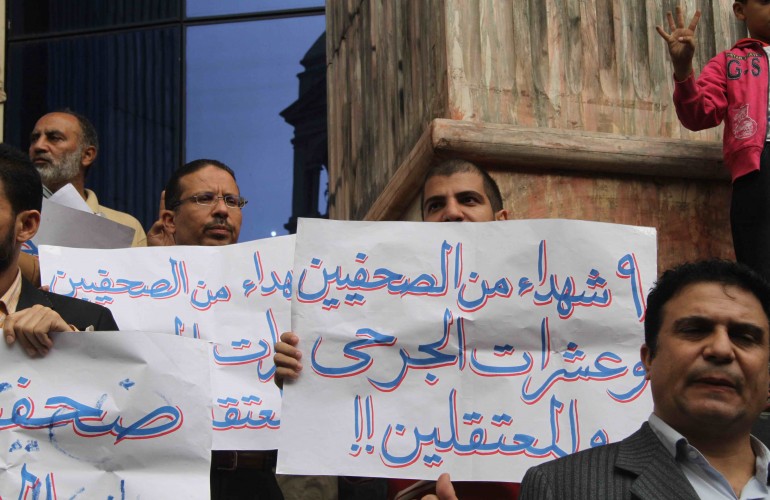 ٩ شهداء من الصحفيين
وعشرات الجرحى
والمعتقلين!!
هداء من الصحفيين
G S